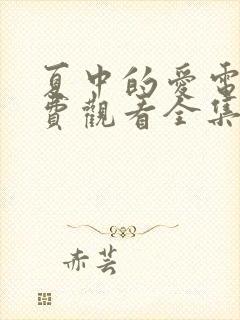 夏中的愛電
費觀看全集
赤芸